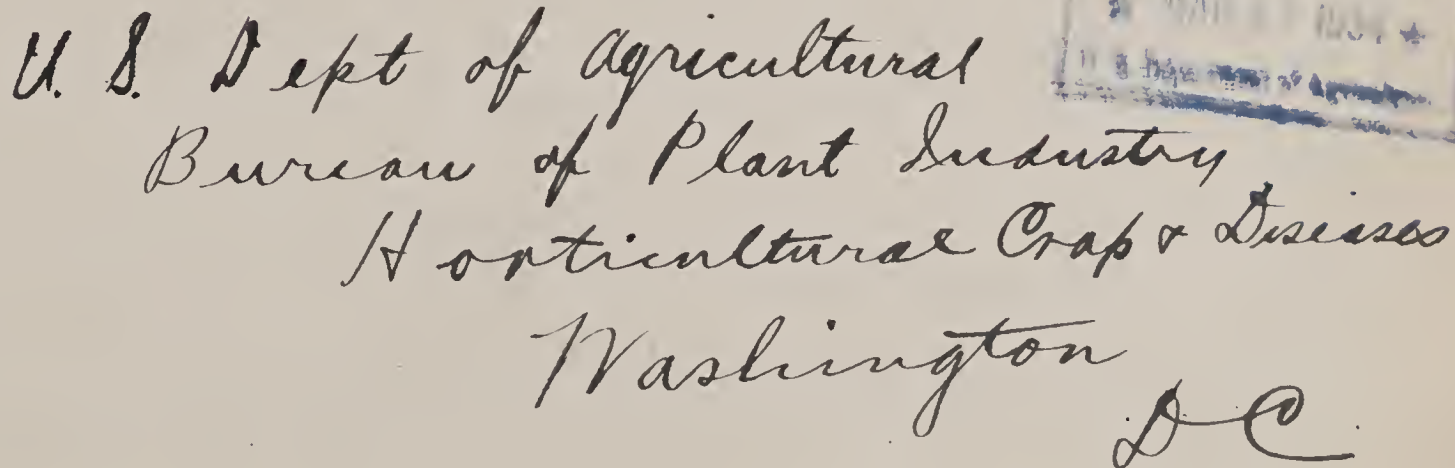 U. S. Dept of Agricultural
Bureau of Plant Industry
Horticultural Crop & Diseases
Washington
D C